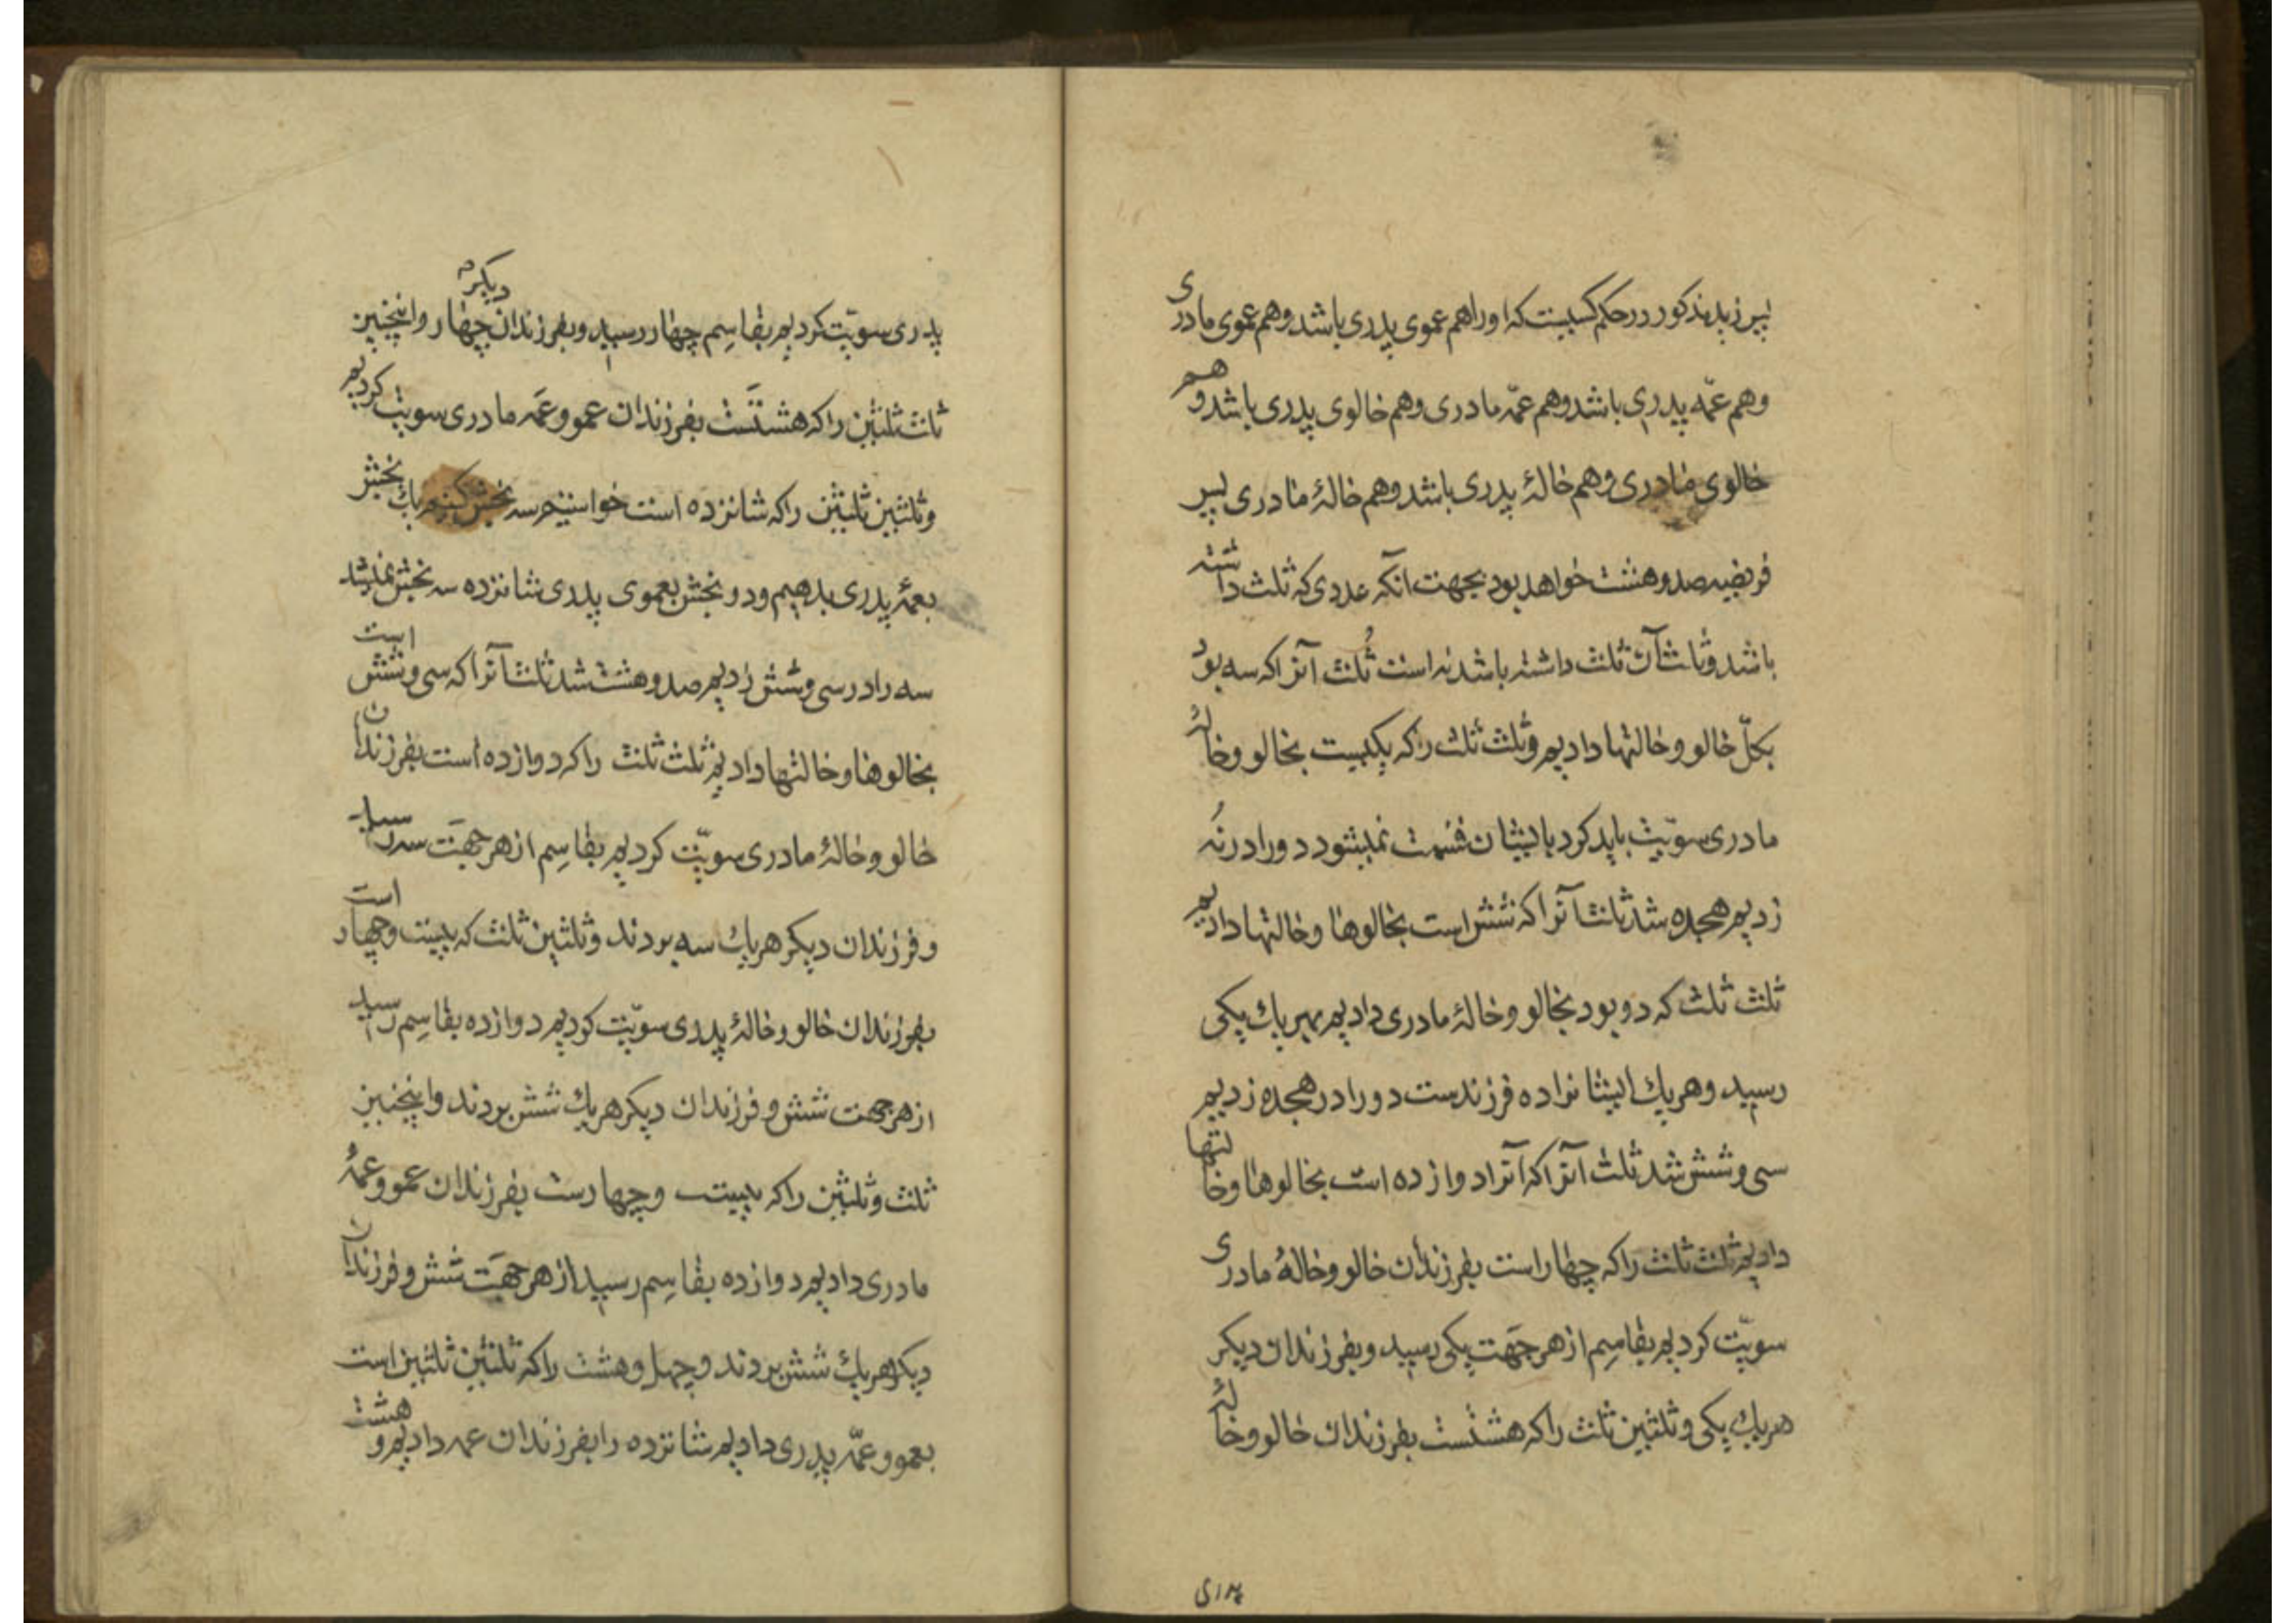 پس زید مذکور در حکم کسیست که او را هم عموی پدری باشد و هم عموی مادری
و هم عمّه پدری باشد و هم عمّه مادری و هم خالوی پدری باشد و هم
خالوی مادری و هم خالهٔ پدری باشد و هم خالهٔ مادری پس
فریضه صد و هشت خواهد بود بجهت آنکه عددی که ثلث داشته
باشد و ثلث آن ثلث داشته باشد نه است ثُلث آنرا که سه بود
بکلّ خالو و خالتها دادیم و ثلث ثلث را که یکیست بخالو و خالهٔ
مادری سویّت باید کرد با ایشان قسمت نمیشود دو را در نُه
زدیم هجده شد ثلث آنرا که شش است بخالوها و خالتها دادیم
ثلث ثلث که دو بود بخالو و خالهٔ مادری دادیم بهر یك یکی
رسید و هر یك ایشانرا ده فرزندست دو را در هجده زدیم
سی و شش شد ثلث آنرا که آنرا دوازده است بخالوها و خالتها
دادیم ثلث ثلث را که چهار است بفرزندان خالو و خالهٔ مادری
سویّت کردیم بقاسِم از هر جهَت یکی رسید و بفرزندان دیکر
هر یك یکی و ثلثین ثلث را که هشتست بفرزندان خالو و خالهٔ
پدری
پدری سویّت کردیم بقاسِم چهار رسید و بفرزندان دیکر چهار و اینچنین
ثلث ثلثین را که هشتَست بفرزندان عمو و عمَه مادری سویت کردیم
و ثلثین ثلثین را که شانزده است خواستیم سه بخش کنیم یك بخش
بعمهٔ پدری بدهیم و دو بخش بعموی پدری شانزده سه بخش نمیشد
سه را در سی و شش زدیم صد و هشت شد ثلث آنرا که سی و شش است
بخالوها و خالتها دادیم ثلث ثلث را که دوازده است بفرزندان
خالو و خالهٔ مادری سویّت کردیم بقاسِم از هر جهَت سه رسید
و فرزندان دیکر هر یك سه بردند و ثلثین ثلث که بیست و چهار است
بفرزندان خالو و خالهٔ پدری سویّت کردیم دوازده بقاسِم رسید
از هر جهت شش و فرزندان دیکر هر یك شش بردند و اینچنین
ثلث و ثلثین را که بیست و چهارست بفرزندان عمو و عمهٔ
مادری دادیم دوازده بقاسِم رسید از هر جهَت شش و فرزندان
دیکر هر یك شش بردند و چهل و هشت را که ثلثین ثلثین است
بعمو و عمّه پدری دادیم شانزده را بفرزندان عمه دادیم و هشت